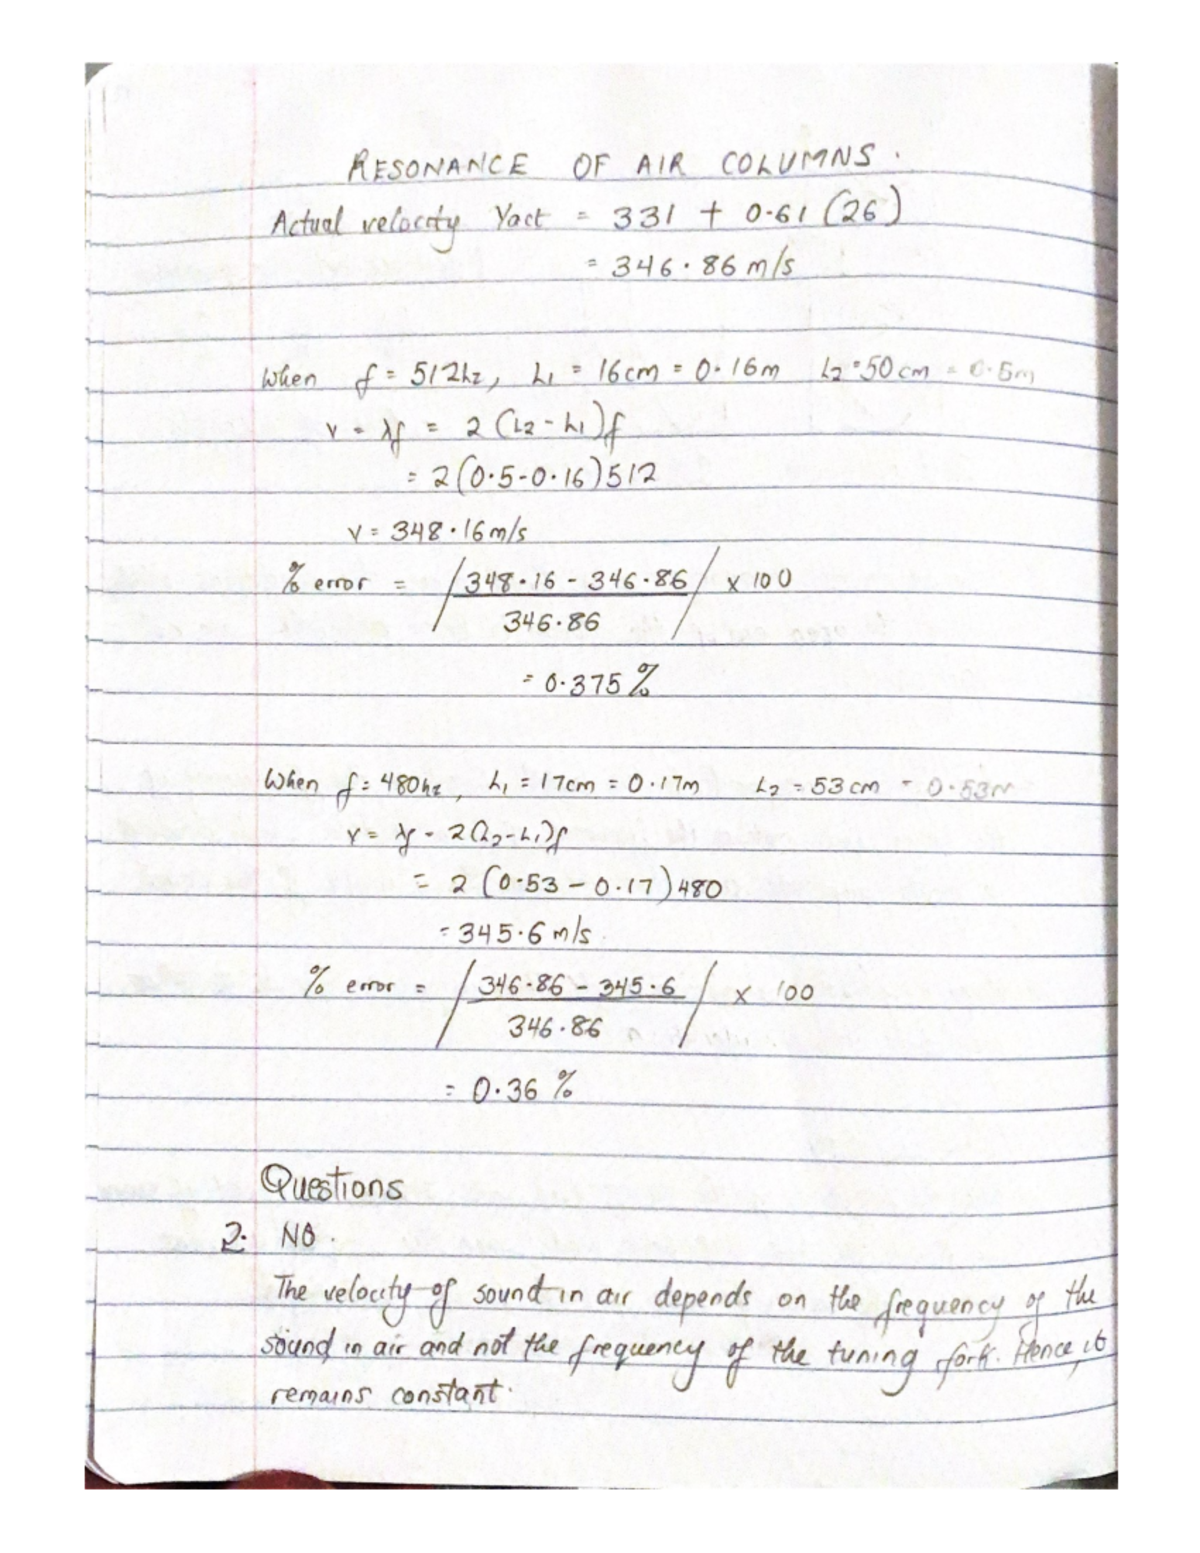 RESONANCE OF AIR COLUMNS.
Actual velocity Vact = 331 + 0.61 (26)
= 346.86 m/s
When f = 512hz, L1 = 16cm = 0.16m L2 = 50cm = 0.5m
v = λf = 2 (L2 - L1)f
= 2(0.5-0.16)512
v = 348.16m/s
% error = |348.16 - 346.86| x 100
346.86
= 0.375 %
When f = 480hz, L1 = 17cm = 0.17m L2 = 53cm = 0.53m
v = λf = 2(L2-L1)f
= 2 (0.53 - 0.17)480
= 345.6 m/s.
% error = |346.86 - 345.6| x 100
346.86
= 0.36 %
Questions
2. NO.
The velocity of sound in air depends on the frequency of the
sound in air and not the frequency of the tuning fork. Hence, it
remains constant.